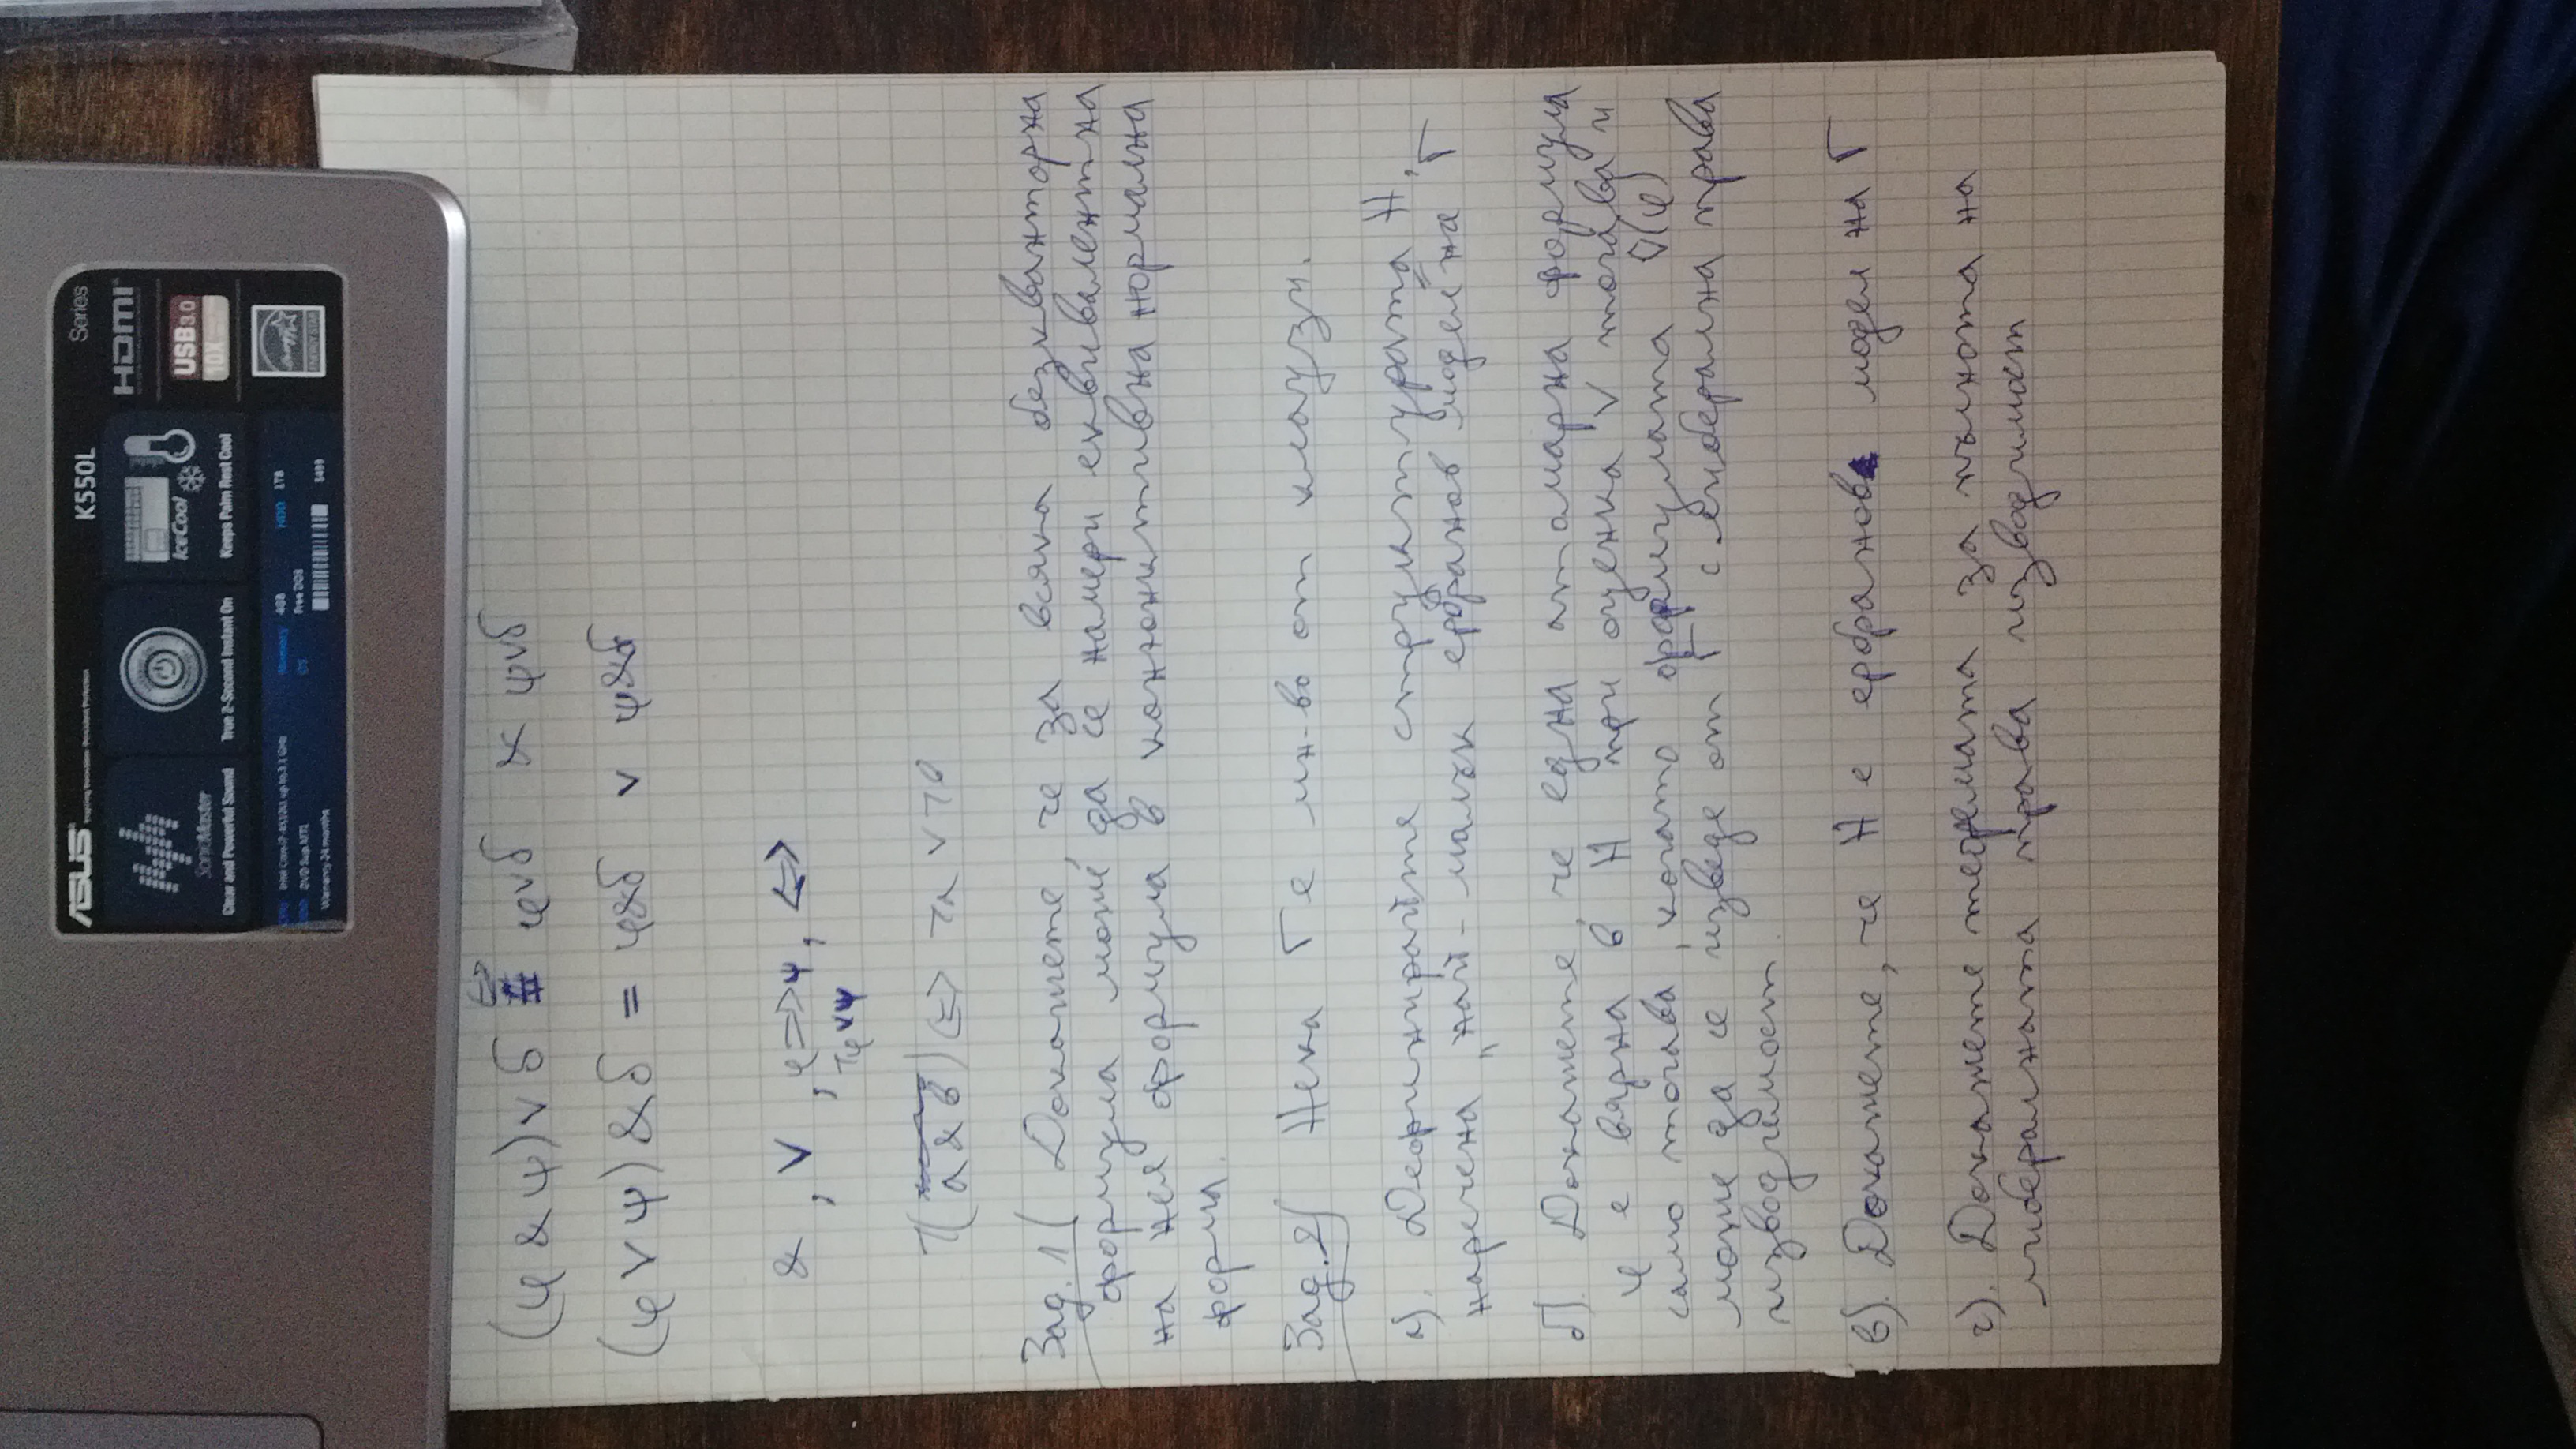 ASUS Inspiring Innovation · Persistent Perfection
K550L Series
HDMI
SonicMaster
IceCool
USB 3.0
10X
Clear and Powerful Sound
True 2-Second Instant On
Keeps Palm Rest Cool
CPU Intel Core i7-4510U up to 3.1 GHz Memory 4GB HDD 1TB
ODD DVD Sup. OS Free DOS
Warranty 24 months
ENERGY STAR
(φ & ψ) ∨ б ⇔ φ∨б & ψ∨б
(φ ∨ ψ) & б = φ&б ∨ ψ&б
& , ∨ , φ=>ψ, <=>
¬φ∨ψ
¬(a & b) <=> ¬a ∨ ¬b
Зад. 1( Докажете, че за всяка безкванторна
формула може да се намери еквивалентна
на нея формула в конюнктивна нормална
форма.
Зад. 2) Нека Г е мн-во от клаузи.
а). Дефинирайте структурата H,
наречена „най-малък ербранов модел" на Г
б). Докажете, че една атомарна формула
φ е вярна в H при оценка v тогава и
само тогава, когато формулата v̂(φ)
може да се изведе от Г с либерална права
изводимост.
в). Докажете, че H е ербранов модел на Г
г). Докажете теоремата за пълнота на
либералната права изводимост